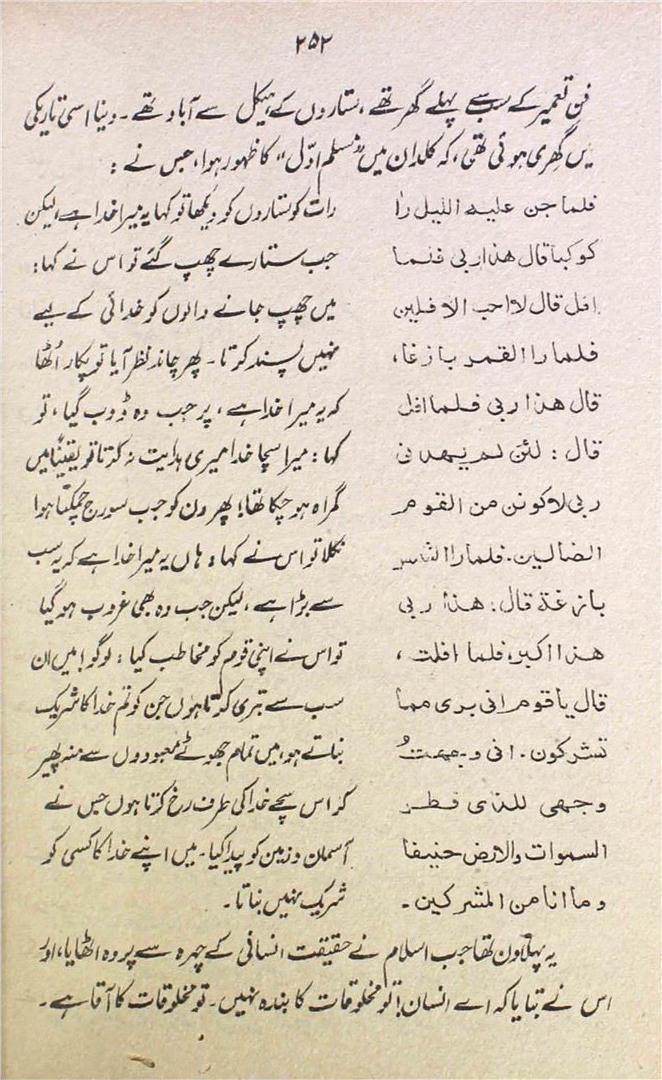 ۲۵۲
فن تعمیر کے سب سے پہلے گھر تھے، ستاروں کے ہیکل سے آباد تھے۔ دنیا اسی تاریکی
میں گھری ہوئی تھی، کہ کلدان میں "مسلم اوّل" کا ظہور ہوا، جس نے :
فلما جن علیہ اللیل راٰ
کوکبا قال ھذا ربی فلما
افل قال لا احب الافلین
فلما را القمر بازغا،
قال ھذا ربی فلما افل
قال : لئن لم یھدنی
ربی لاکونن من القوم
الضالین۔ فلما را الشمس
بازغة قال: ھذا ربی
ھذا اکبر، فلما افلت ،
قال یا قوم انی بری مما
تشرکون۔ انی وجھتُ
وجھی للذی فطر
السموات والارض حنیفا
وما انا من المشرکین۔
رات کو ستاروں کو دیکھا تو کہا یہ میرا خدا ہے، لیکن
جب ستارے چھپ گئے تو اس نے کہا:
میں چھپ جانے والوں کو خدائی کے لیے
نہیں پسند کرتا۔ پھر چاند نظر آیا تو پکار اُٹھا
کہ یہ میرا خدا ہے ، پر جب وہ ڈوب گیا، تو
کہا : میرا سچا خدا میری ہدایت نہ کرتا تو یقینًا میں
گمراہ ہو چکا تھا! پھر دن کو جب سورج چمکتا ہوا
نکلا تو اس نے کہا وہاں یہ میرا خدا ہے کہ یہ سب
سے بڑا ہے ، لیکن جب وہ بھی غروب ہو گیا
تو اس نے اپنی قوم کو مخاطب کیا : لوگو! میں ان
سب سے تبری کرتا ہوں جن کو تم خدا کا شریک
بناتے ہو، میں تمام جھوٹے معبودوں سے منہ پھیر
کر اس سچے خدا کی طرف رخ کرتا ہوں جس نے
آسمان و زمین کو پیدا کیا۔ میں اپنے خدا کا کسی کو
شریک نہیں بناتا۔
یہ پہلا دن تھا جب اسلام نے حقیقت انسانی کے چہرہ سے پردہ اٹھایا، اور
اس نے بتایا کہ اے انسان! تو مخلوقات کا بندہ نہیں۔ تو مخلوقات کا آقا ہے۔